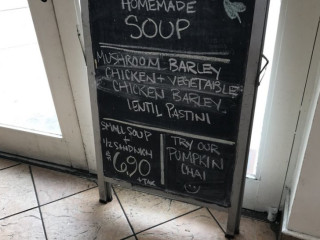 HOMEMADE
SOUP
MUSHROOM BARLEY
CHICKEN + VEGETABLE
CHICKEN BARLEY
LENTIL PASTINI
SMALL SOUP
+
1/2 SANDWICH
$6.90
+TAX
TRY OUR
PUMPKIN
CHAI